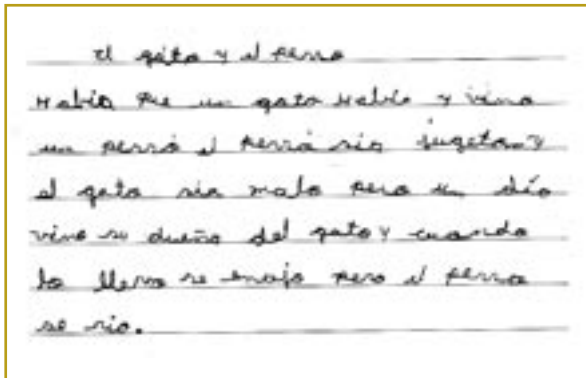 El gato y el perro
Había que un gato Había y vino
un perro el perro sia jugeton y
el gato sia malo pero un día
vino su dueño del gato y cuando
lo llevo se enojo pero el perro
se rio.